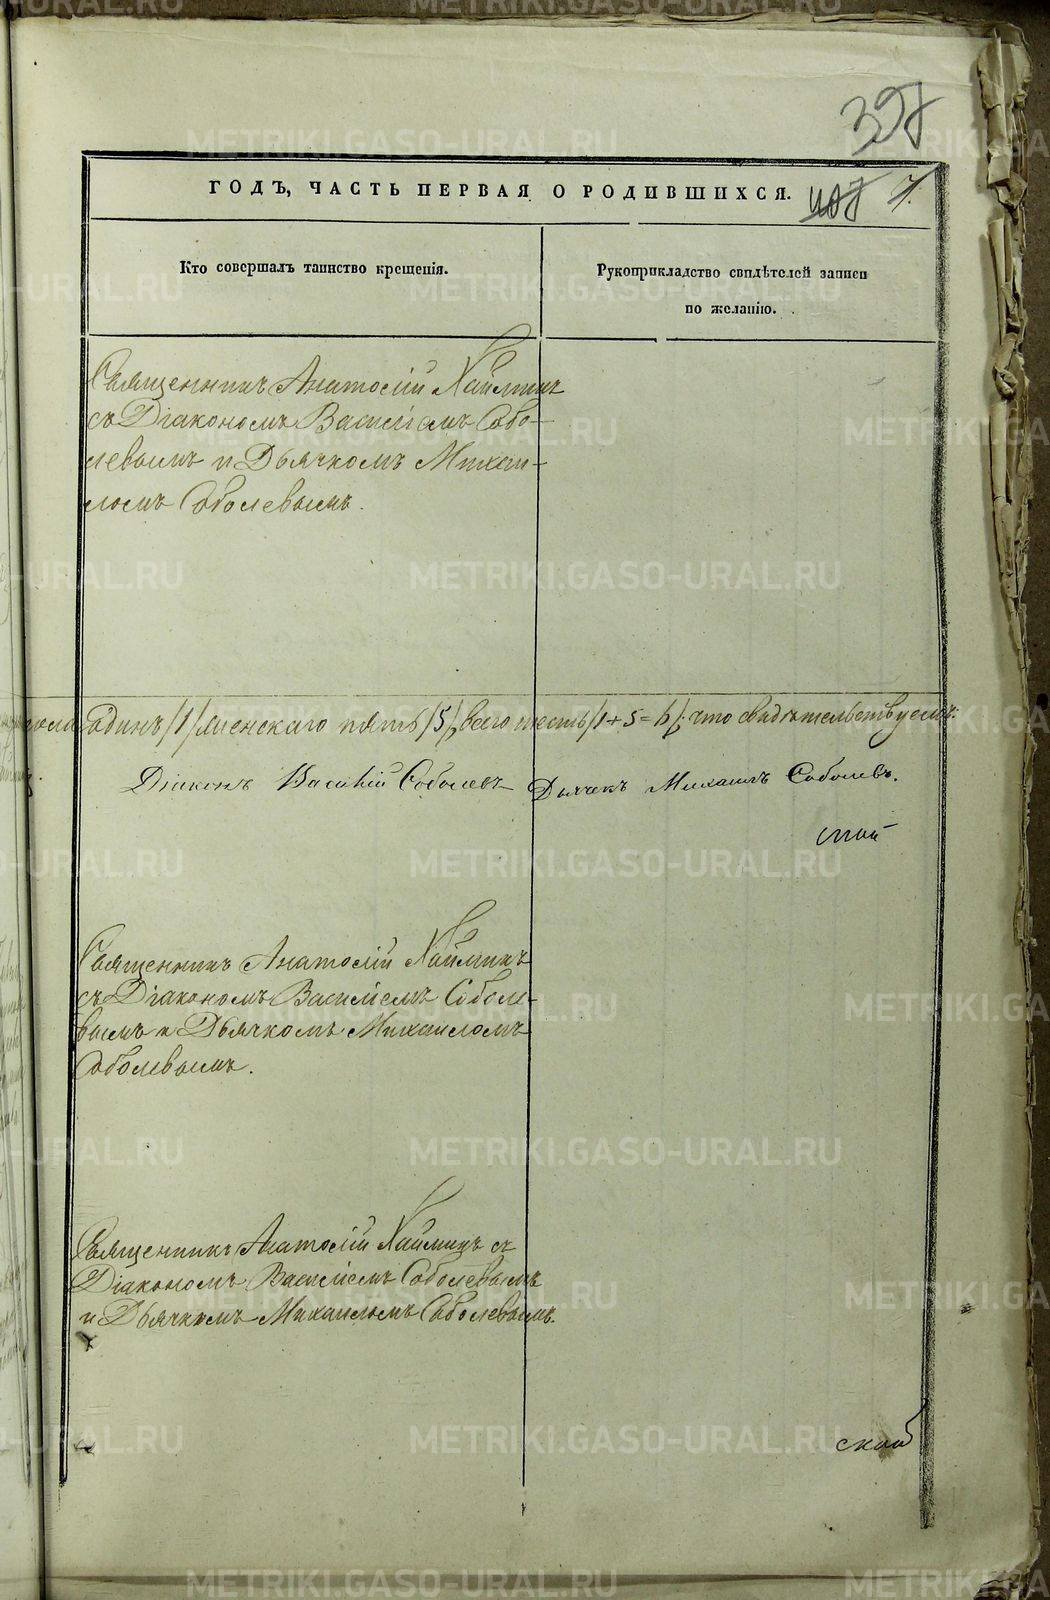 397
ГОДЪ, ЧАСТЬ ПЕРВАЯ О РОДИВШИХСЯ.
7.
Кто совершалъ таинство крещенія.
Рукоприкладство свидѣтелей записи
по желанію.
Священникъ Анатолій Хаймин
съ Діакономъ Василіемъ Собо-
левымъ и Дьячкомъ Михаи-
ломъ Соболевымъ.
одинъ /1/ женскаго пять /5/, всего шесть /1+5=6/; что свидѣтельствуемъ:
Діаконъ Василій Соболевъ Дьячекъ Михаилъ Соболевъ.
Священникъ Анатолій Хайминъ
съ Діакономъ Василіемъ Соболе-
вымъ и Дьячкомъ Михаиломъ
Соболевымъ.
Священникъ Анатолій Хайминъ съ
Діакономъ Василіемъ Соболевымъ
и Дьячкомъ Михаиломъ Соболевымъ.
ской
METRIKI.GASO-URAL.RU